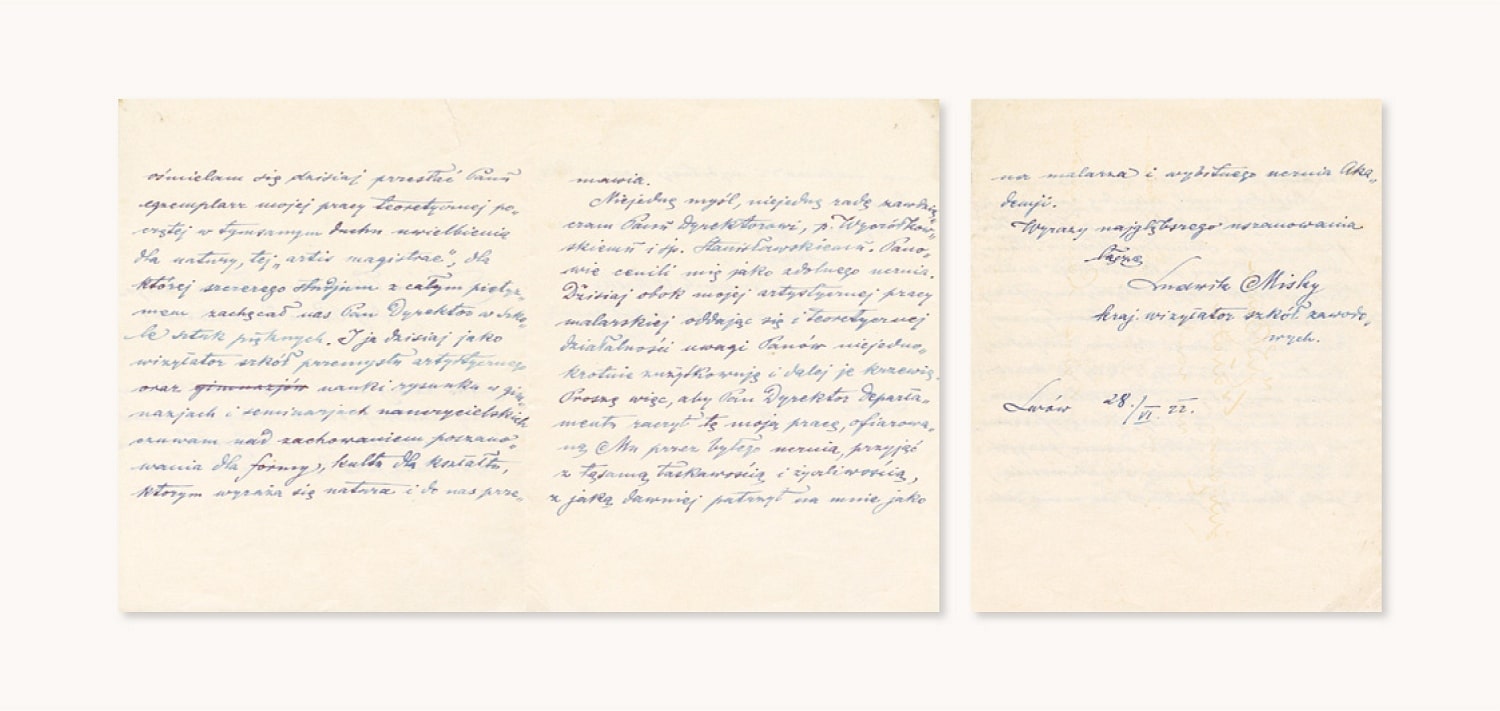 ośmielam się dzisiaj przesłać Panu
egzemplarz mojej pracy teoretycznej po„
czętej w tymsamym duchu uwielbienia
dla natury, tej „artis magistrae", dla
której szczerego studjum z całym pietyz„
mem zachęcał nas Pan Dyrektor w Szko„
le sztuk pięknych. I ja dzisiaj jako
wizytator szkół przemysłu artystycznego
oraz gimnazjów nauki rysunku w gim„
nazjach i seminarjach nauczycielskich
czuwam nad zachowaniem poszano„
wania dla formy, kultu dla kształtu,
którym wyraża się natura i do nas prze„
mawia.
Niejedną myśl, niejedną radę zawdzię„
czam Panu Dyrektorowi, p. Wyczółkow„
skiemu i śp. Stanisławskiemu. Pano„
wie cenili mię jako zdolnego ucznia.
Dzisiaj obok mojej artystycznej pracy
malarskiej oddając się i teoretycznej
działalności uwagi Panów niejedno„
krotnie zużytkowuję i dalej je krzewię.
Proszę więc, aby Pan Dyrektor Departa„
mentu raczył tę moją pracę, ofiarowa„
ną Mu przez byłego ucznia, przyjąć
z tąsamą łaskawością i życzliwością,
z jaką dawniej patrzył na mnie jako
na malarza i wybitnego ucznia Aka„
demji.
Wyrazy najgłębszego uszanowania
łączę
Ludwik Misky
kraj. wizytator szkół zawodo„
wych.
Lwów 28./VI. 22.